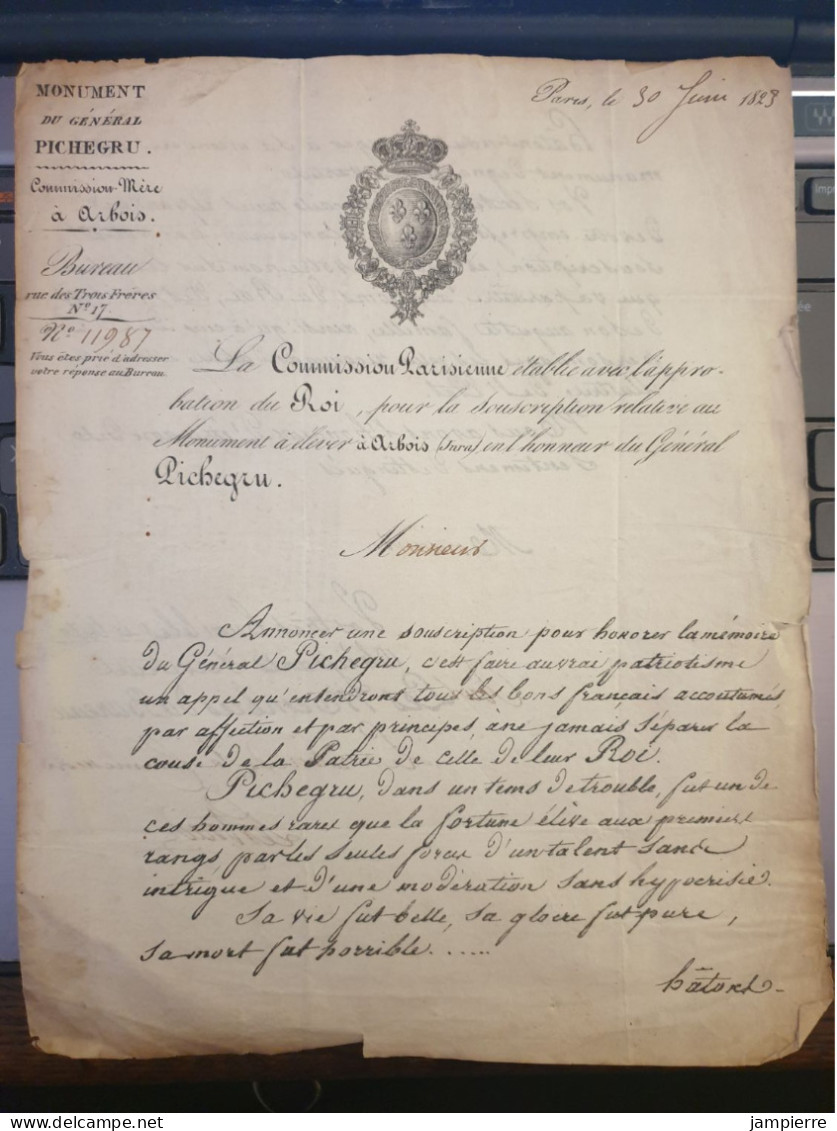 MONUMENT
DU GÉNÉRAL
PICHEGRU.
Commission-Mère
à Arbois.
Bureau
rue des Trois Frères
N.º 17
N.º 11987
Vous êtes prié d'adresser
votre réponse au Bureau.
Paris, le 30 Juin 1823
La Commission Parisienne établie avec l'appro-
bation du Roi, pour la souscription relative au
Monument à élever à Arbois (Jura) en l'honneur du Général
Pichegru.
Monsieur
Annoncer une souscription pour honorer la mémoire
du Général Pichegru, c'est faire au vrai patriotisme
un appel qu'entendront tous les bons français accoutumés,
par affection et par principes, à ne jamais séparer la
cause de la Patrie de celle de leur Roi.
Pichegru, dans un tems de trouble, fut un de
ces hommes rares que la fortune élève aux premiers
rangs par les seules forces d'un talent sans
intrigue et d'une modération sans hypocrisie.
Sa vie fut belle, sa gloire fut pure,
sa mort fut horrible......
hâtons-
jampierre